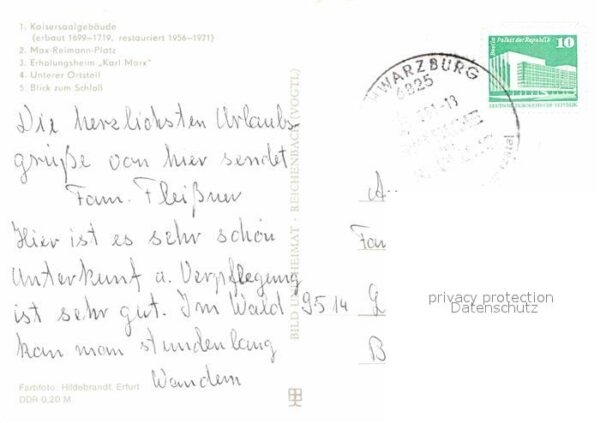 1. Kaisersaalgebäude
(erbaut 1699–1719, restauriert 1956–1971)
2. Max-Reimann-Platz
3. Erholungsheim „Karl Marx"
4. Unterer Ortsteil
5. Blick zum Schloß
Die herzlichsten Urlaubs
grüße von hier sendet
Fam. Fleißner
Hier ist es sehr schön
Unterkunft u. Verpflegung
ist sehr gut. Im Wald
kan man stundenlang
Wandern
Farbfoto: Hildebrandt, Erfurt
DDR 0,20 M
BILD UND HEIMAT · REICHENBACH (VOGTL)
WARZBURG
6825
Berlin, Palast der Republik
10
DEUTSCHE DEMOKRATISCHE REPUBLIK
A
Fam
9514
B
privacy protection
Datenschutz